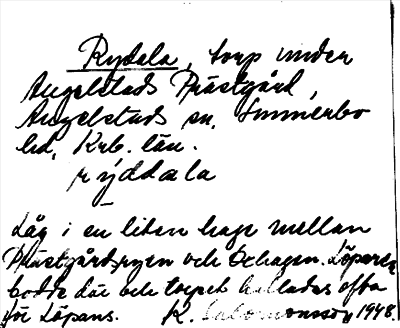 Rydala, torp under
Angelstads Prästgård,
Angelstads sn. Sunnerbo
hd, Krb. län.
rýddala
Låg i en liten hage mellan
Prästgårdsryen och Oxhagen. Löparen
bodde där och torpet kallades ofta
för Löpans. K. Salomonsson 1948.